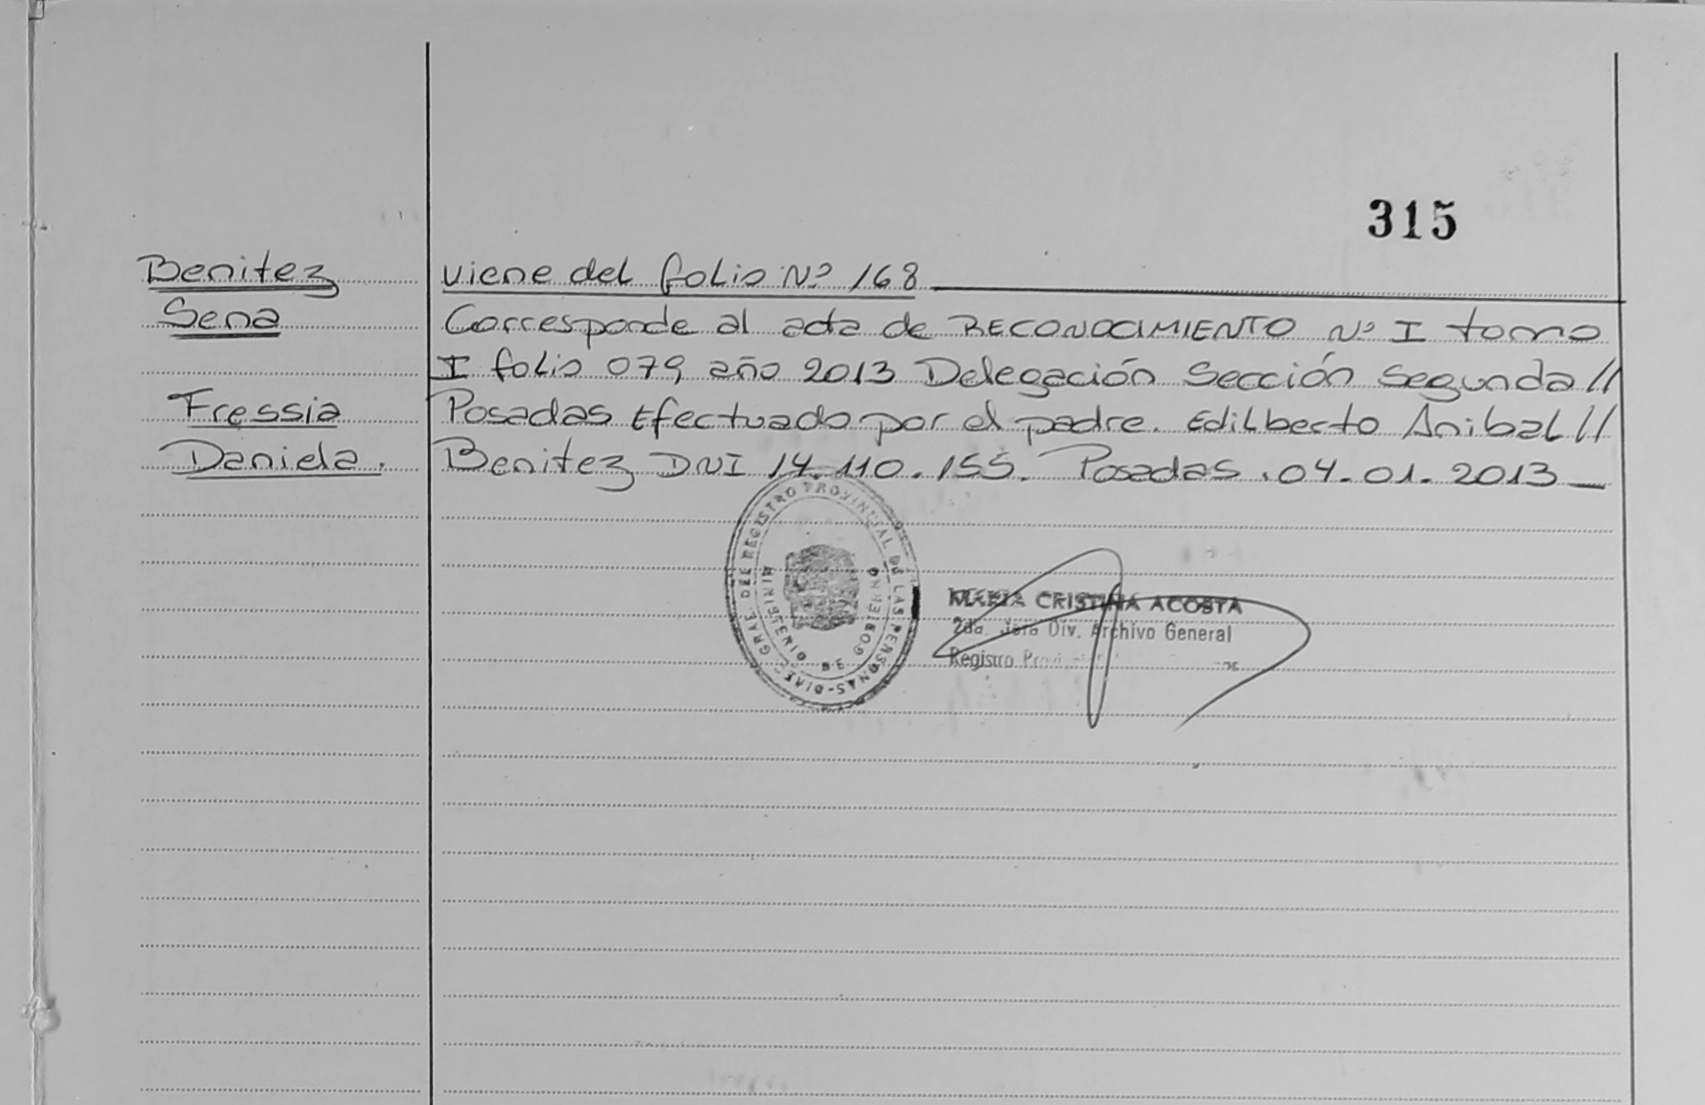 315
Benitez
Sena
Fressia
Daniela.
viene del folio Nº 168
Corresponde al acta de RECONOCIMIENTO Nº I tomo
I folio 079 año 2013 Delegación Sección Segunda //
Posadas Efectuado por el padre. Edilberto Anibal //
Benitez DNI 14.110.155. Posadas. 04.01.2013
DIREC. GRAL. DEL REGISTRO PROVINCIAL DE LAS PERSONAS
MARIA CRISTINA ACOSTA
2da. Jefa Div. Archivo General
Registro